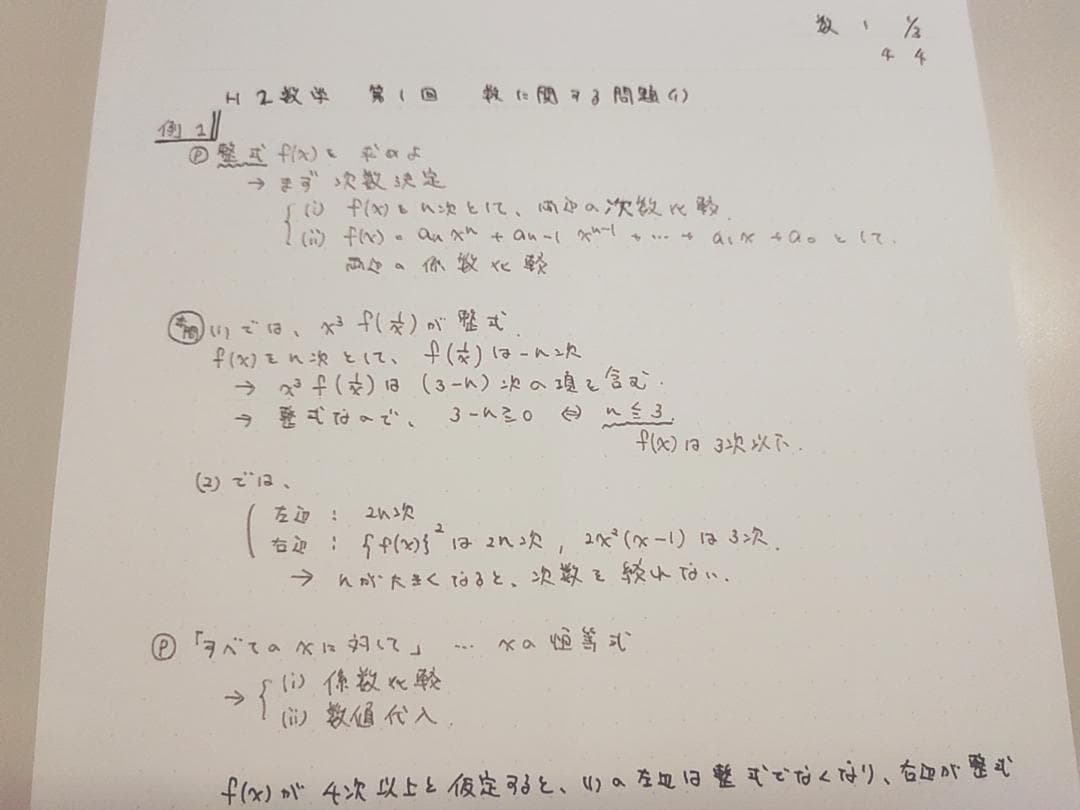 数 1 1/3
4 4
H2数学 第1回 数に関する問題(1)
例1
Ⓟ 整式 f(x)を求めよ
→ まず次数決定
(i) f(x)をn次として、両辺の次数比較.
(ii) f(x) = aₙxⁿ + aₙ₋₁xⁿ⁻¹ + … + a₁x + a₀ として.
両辺の係数比較
本問 (1)では、x³f(1/x)が整式.
f(x)をn次として、f(1/x)は-n次
→ x³f(1/x)は (3-n)次の項を含む.
→ 整式なので、3-n≧0 ⇔ n≦3.
f(x)は3次以下.
(2)では、
左辺 : 2n次
右辺 : {f(x)}²は2n次, 2x²(x-1)は3次.
→ nが大きくなると、次数を絞れない.
Ⓟ 「すべてのxに対して」 … xの恒等式
→ (i) 係数比較
(ii) 数値代入.
f(x)が4次以上と仮定すると、(1)の左辺は整式でなくなり、右辺が整式